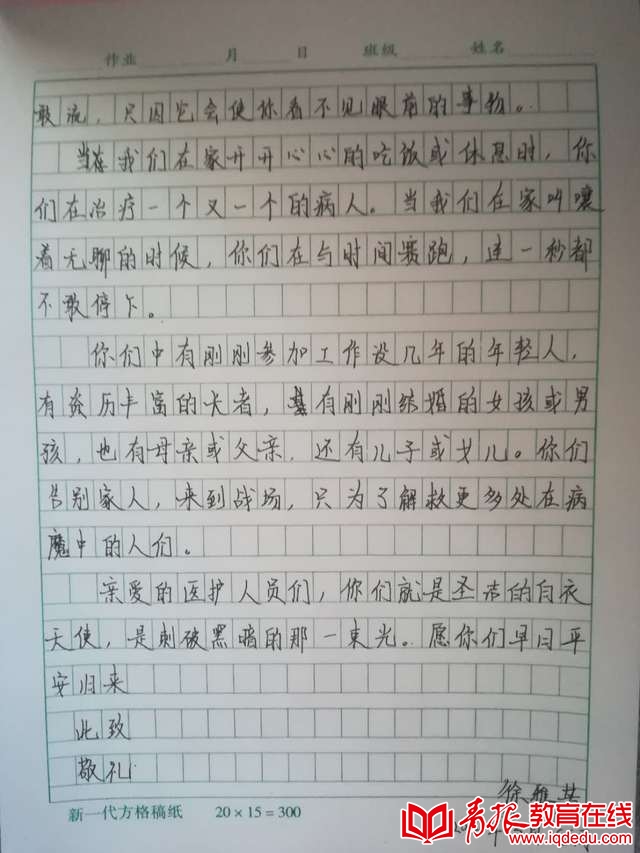 作业 月 日 班级 姓名
敢流，只因它会使你看不见眼前的事物。
当在我们在家开开心心的吃饭或休息时，你
们在治疗一个又一个的病人。当我们在家叫嚷
着无聊的时候，你们在与时间赛跑，连一秒都
不敢停下。
你们中有刚刚参加工作没几年的年轻人，
有资历丰富的长者，有刚刚结婚的女孩或男
孩，也有母亲或父亲，还有儿子或女儿。你们
告别家人，来到战场，只为了解救更多处在病
魔中的人们。
亲爱的医护人员们，你们就是圣洁的白衣
天使，是刺破黑暗的那一束光。愿你们早日平
安归来
此致
敬礼
徐雅
新一代方格稿纸 20×15=300
青报教育在线
www.iqdedu.com